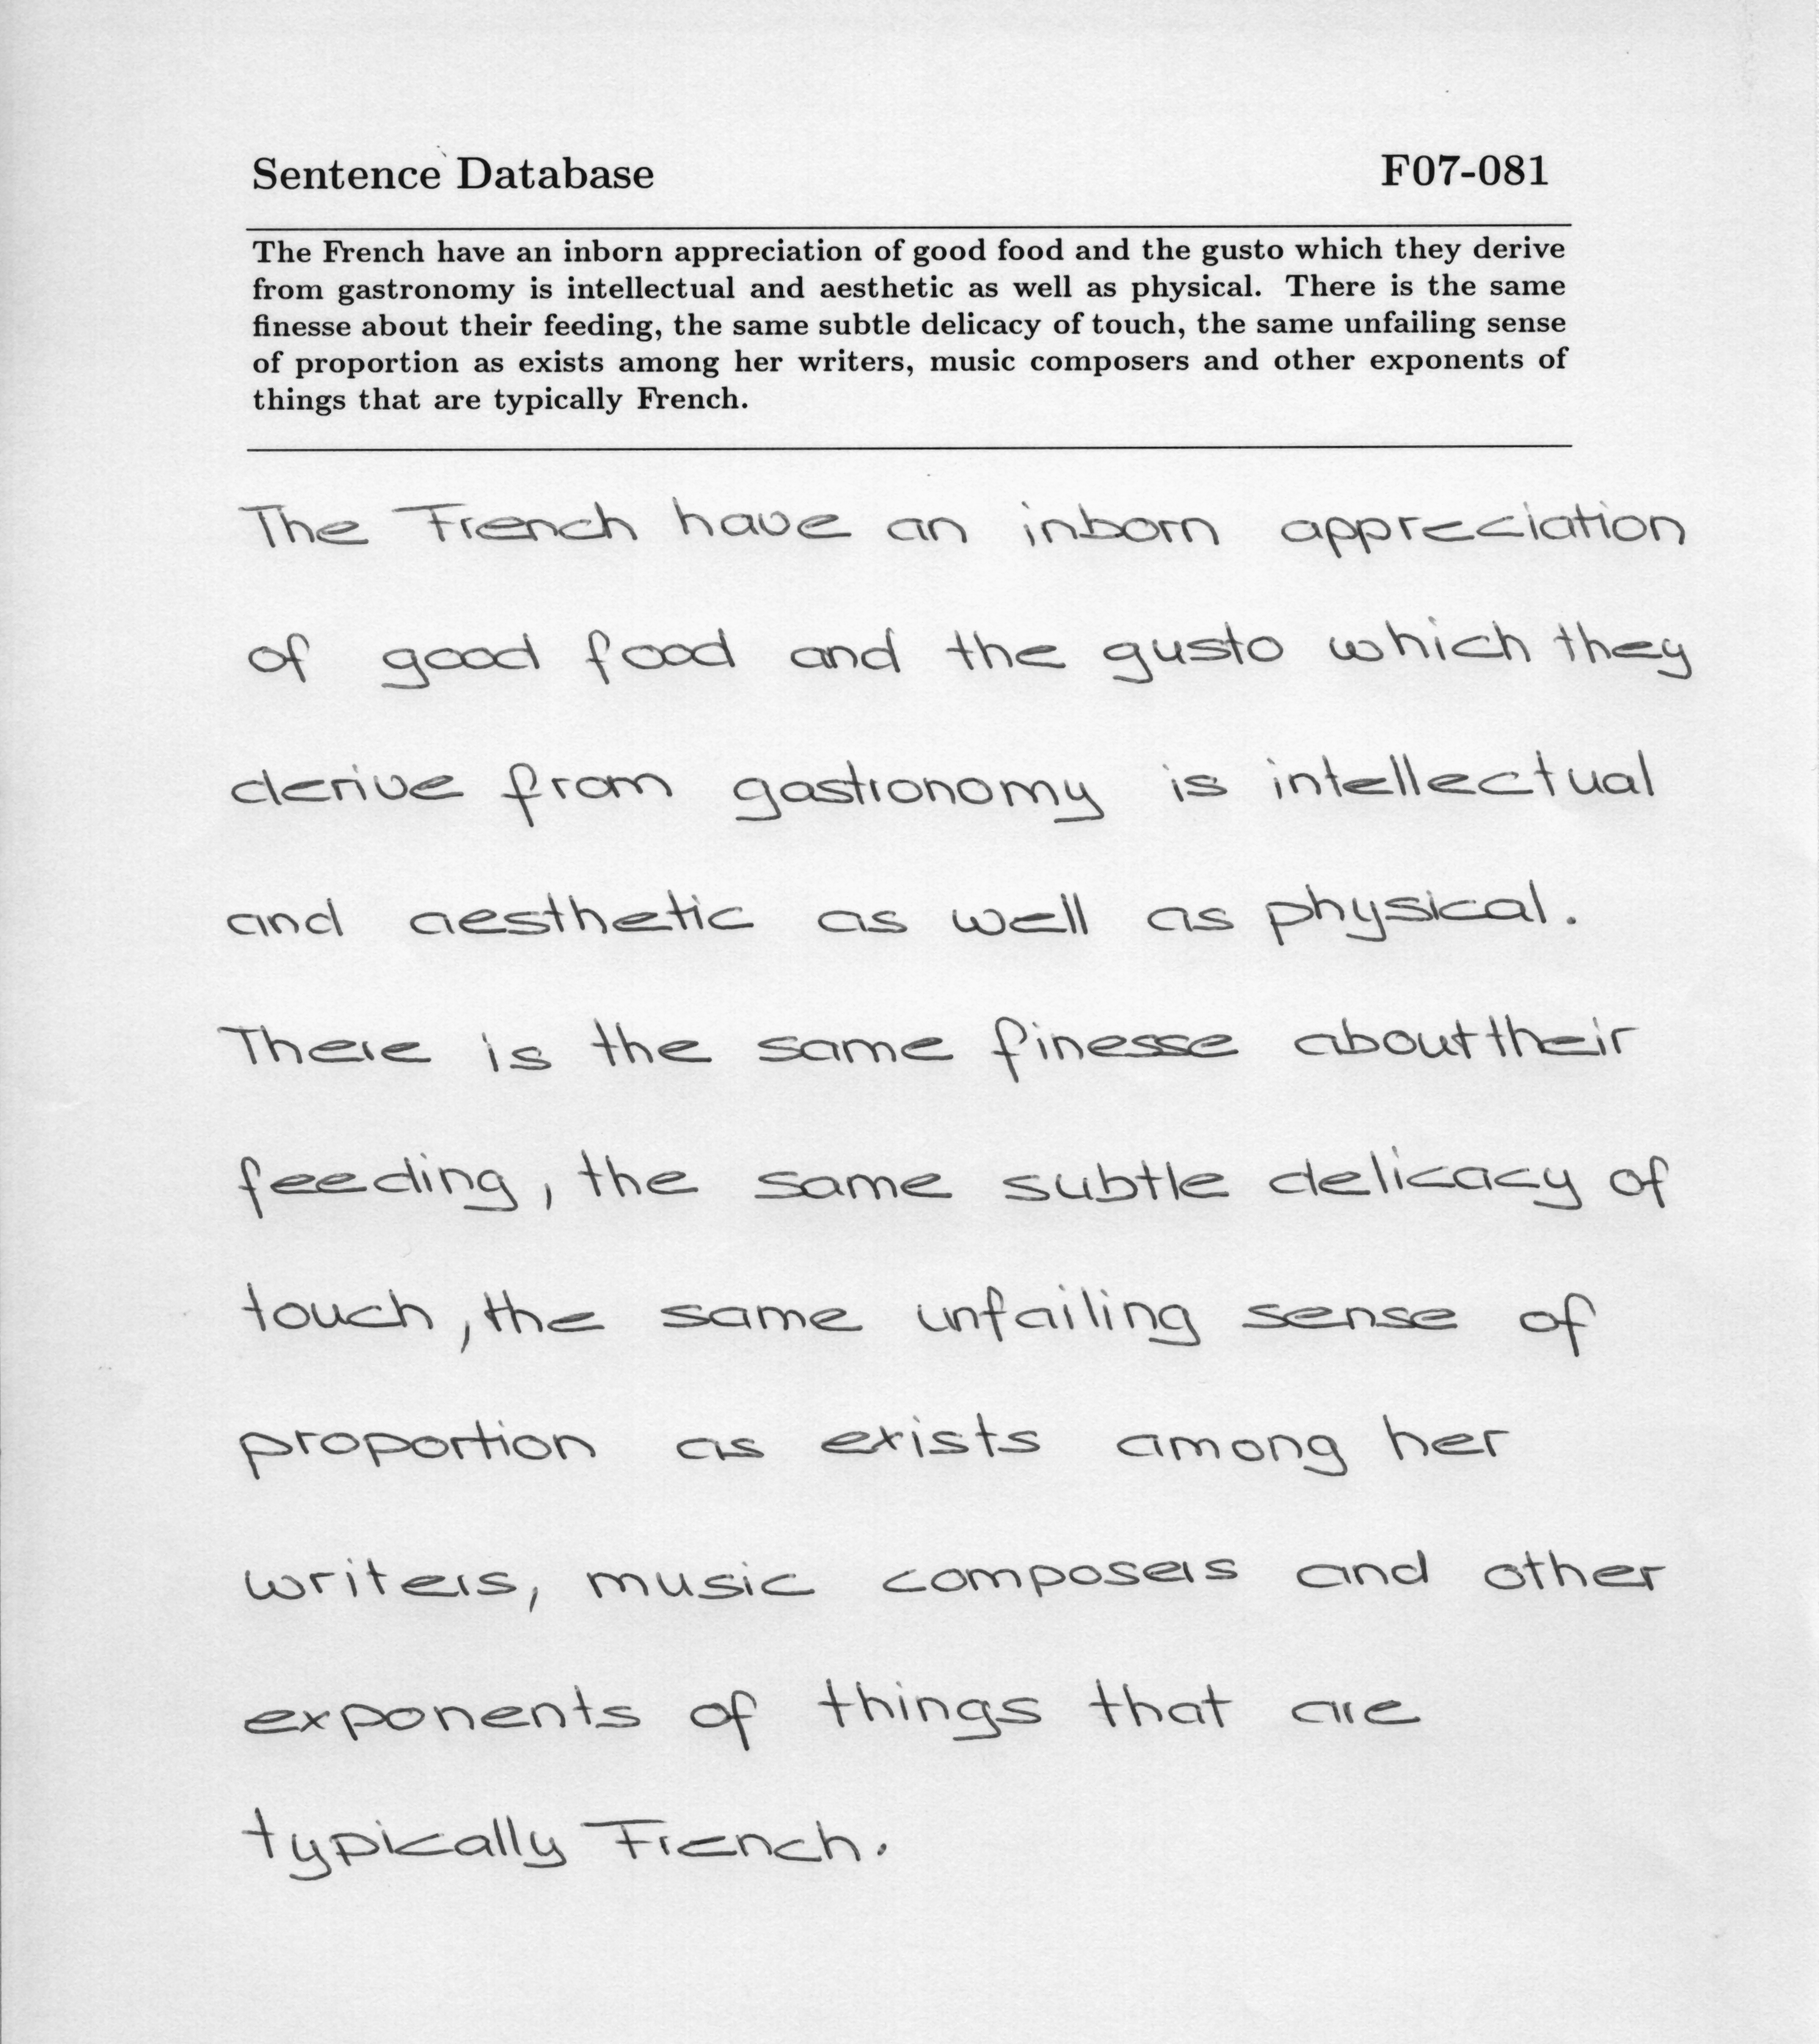 Sentence Database F07-081
The French have an inborn appreciation of good food and the gusto which they derive
from gastronomy is intellectual and aesthetic as well as physical. There is the same
finesse about their feeding, the same subtle delicacy of touch, the same unfailing sense
of proportion as exists among her writers, music composers and other exponents of
things that are typically French.
The French have an inborn appreciation
of good food and the gusto which they
derive from gastronomy is intellectual
and aesthetic as well as physical.
There is the same finesse about their
feeding, the same subtle delicacy of
touch, the same unfailing sense of
proportion as exists among her
writers, music composers and other
exponents of things that are
typically French.